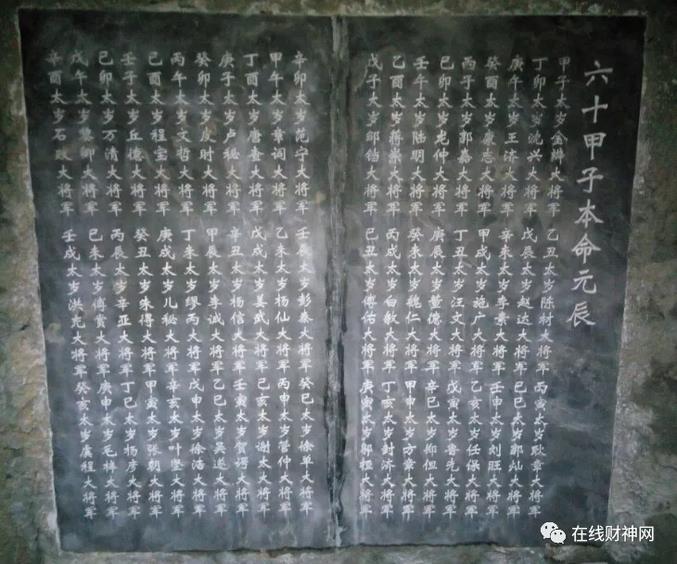 六十甲子本命元辰
甲子太岁金辨大将军 乙丑太岁陈材大将军 丙寅太岁耿章大将军
丁卯太岁沈兴大将军 戊辰太岁赵达大将军 己巳太岁郭灿大将军
庚午太岁王济大将军 辛未太岁李素大将军 壬申太岁刘旺大将军
癸酉太岁康志大将军 甲戌太岁施广大将军 乙亥太岁任保大将军
丙子太岁郭嘉大将军 丁丑太岁汪文大将军 戊寅太岁鲁先大将军
己卯太岁龙仲大将军 庚辰太岁董德大将军 辛巳太岁郑但大将军
壬午太岁陆明大将军 癸未太岁魏仁大将军 甲申太岁方章大将军
乙酉太岁蒋崇大将军 丙戌太岁白敏大将军 丁亥太岁封济大将军
戊子太岁邹铛大将军 己丑太岁傅佑大将军 庚寅太岁邬桓大将军
辛卯太岁范宁大将军 壬辰太岁彭泰大将军 癸巳太岁徐单大将军
甲午太岁章词大将军 乙未太岁杨仙大将军 丙申太岁管仲大将军
丁酉太岁唐查大将军 戊戌太岁姜武大将军 己亥太岁谢太大将军
庚子太岁卢秘大将军 辛丑太岁杨信大将军 壬寅太岁贺谔大将军
癸卯太岁皮时大将军 甲辰太岁李诚大将军 乙巳太岁吴遂大将军
丙午太岁文哲大将军 丁未太岁缪丙大将军 戊申太岁徐浩大将军
己酉太岁程宝大将军 庚戌太岁儿秘大将军 辛亥太岁叶坚大将军
壬子太岁丘德大将军 癸丑太岁朱得大将军 甲寅太岁张朝大将军
己卯太岁万清大将军 丙辰太岁辛亚大将军 丁巳太岁杨彦大将军
戊午太岁黎卿大将军 己未太岁傅赏大将军 庚申太岁毛梓大将军
辛酉太岁石政大将军 壬戌太岁洪充大将军 癸亥太岁虞程大将军
在线财神网